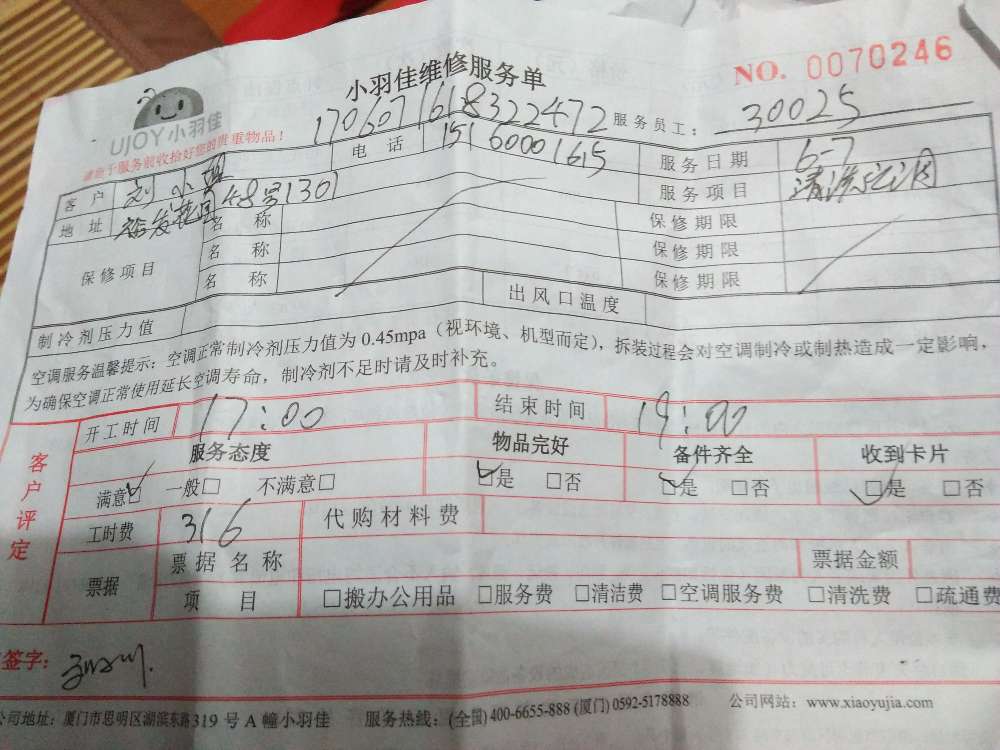 小羽佳维修服务单
NO. 0070246
UJOY小羽佳
请您于服务前收拾好您的贵重物品！
170607161832２472
服务员工： 30025
客户 刘小姐 电话 15160001615 服务日期 6-7
地址 裕发花园48号1301 服务项目 清洗空调
保修项目 名称 保修期限
名称 保修期限
名称 保修期限
制冷剂压力值 出风口温度
空调服务温馨提示：空调正常制冷剂压力值为 0.45mpa（视环境、机型而定），拆装过程会对空调制冷或制热造成一定影响，
为确保空调正常使用延长空调寿命，制冷剂不足时请及时补充。
客户评定
开工时间 17:00 结束时间 19:00
服务态度 物品完好 备件齐全 收到卡片
满意☑ 一般□ 不满意□ ☑是 □否 ☑是 □否 ☑是 □否
工时费 316 代购材料费
票据 票据名称 票据金额
项目 □搬办公用品 □服务费 □清洁费 □空调服务费 □清洗费 □疏通费
签字：
公司地址：厦门市思明区湖滨东路319号A幢小羽佳 服务热线：(全国) 400-6655-888 (厦门) 0592-5178888 公司网站：www.xiaoyujia.com